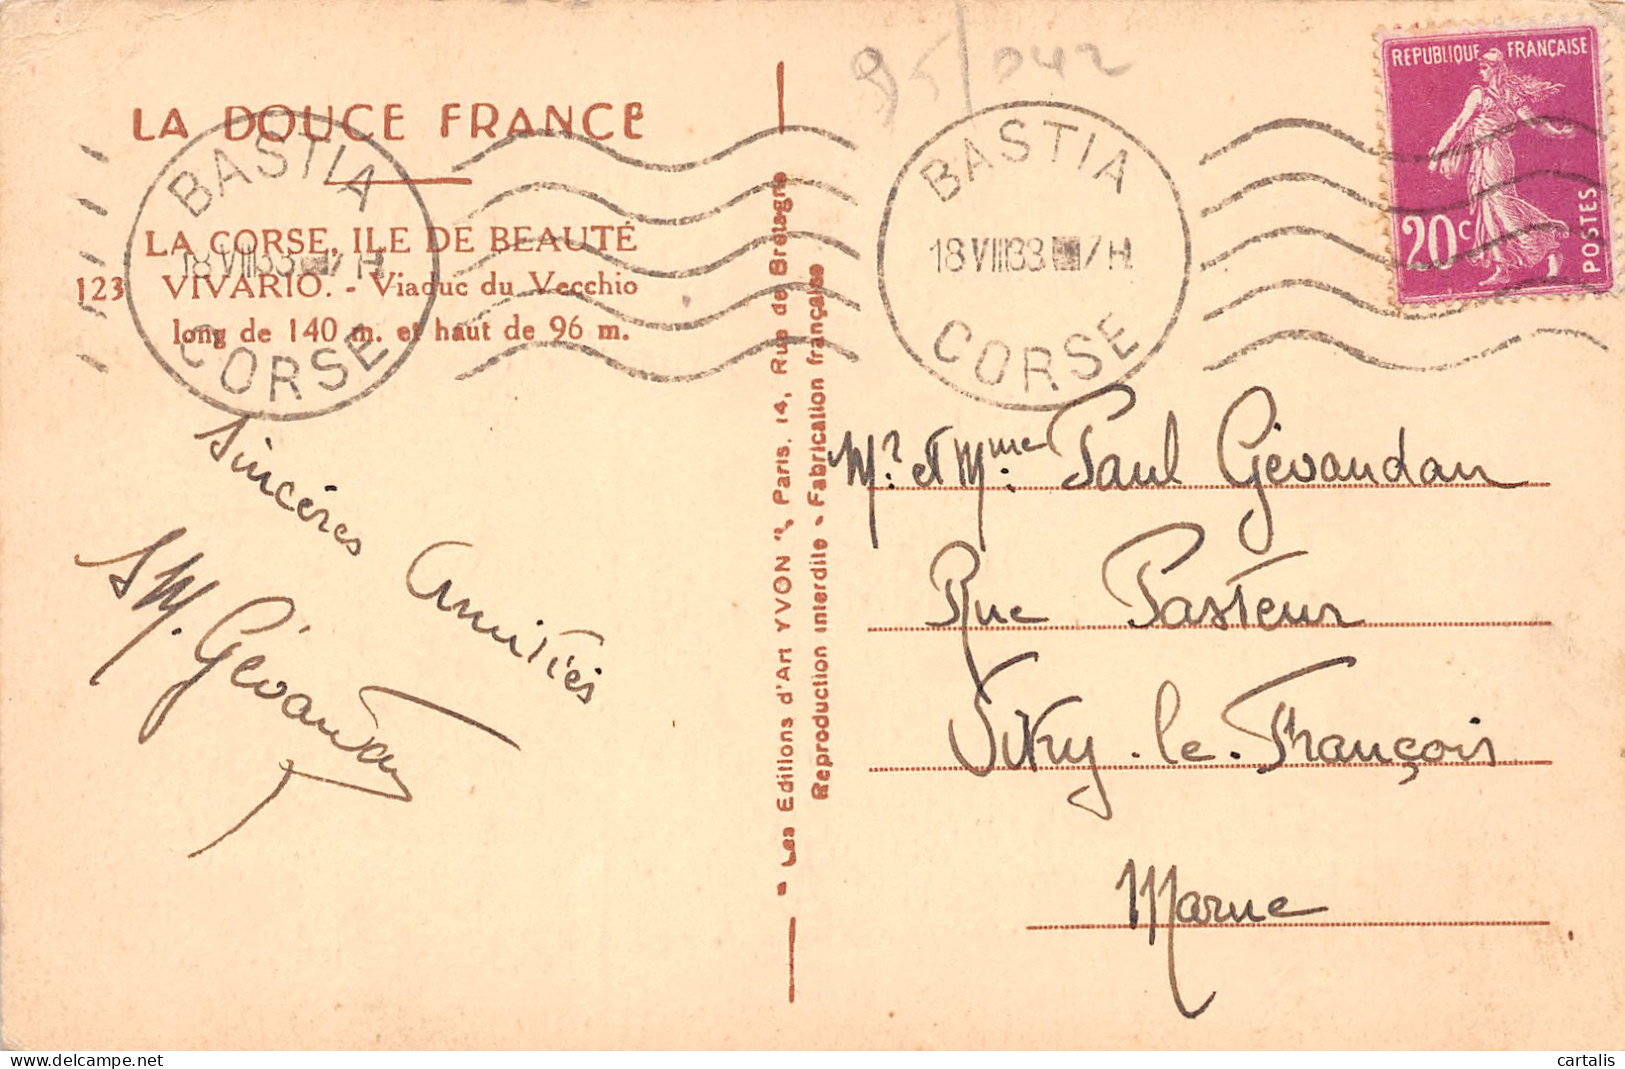 95/042
LA DOUCE FRANCE
LA CORSE, ILE DE BEAUTÉ
123 VIVARIO. - Viaduc du Vecchio
long de 140 m. et haut de 96 m.
BASTIA
CORSE
BASTIA
18 VIII 33 /H
CORSE
REPUBLIQUE FRANÇAISE
20c
POSTES
Sincères Amitiés
M. Gévaudan
" Les Editions d'Art YVON ", Paris, 14, Rue de Bretagne
Reproduction interdite - Fabrication française
Mr. et Mme. Paul Gévaudan
Rue Pasteur
Vitry-le-François
Marne
cartalis